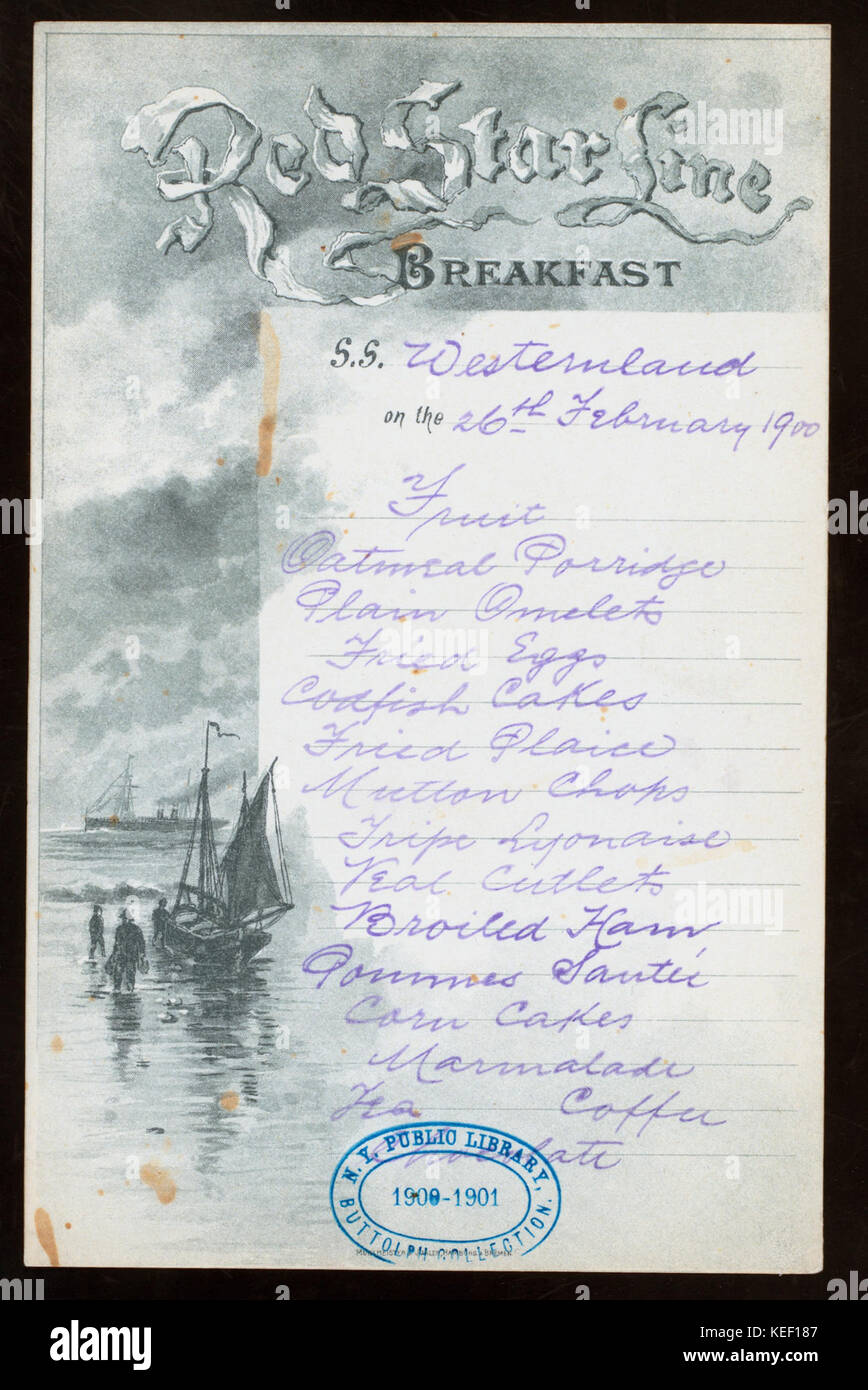 Red Star Line
BREAKFAST
S.S. Westernland
on the 26th February 1900
Fruit
Oatmeal Porridge
Plain Omelets
Fried Eggs
Codfish Cakes
Fried Plaice
Mutton Chops
Tripe Lyonaise
Veal Cutlets
Broiled Ham
Pommes Sauteé
Corn Cakes
Marmalade
Tea Coffee
Chocolate
N. Y. PUBLIC LIBRARY,
1900-1901
BUTTOLPH COLLECTION.
MÜHLMEISTER HAMBURG & BREMEN
alamy
alamy
Image ID: KEF187
www.alamy.com